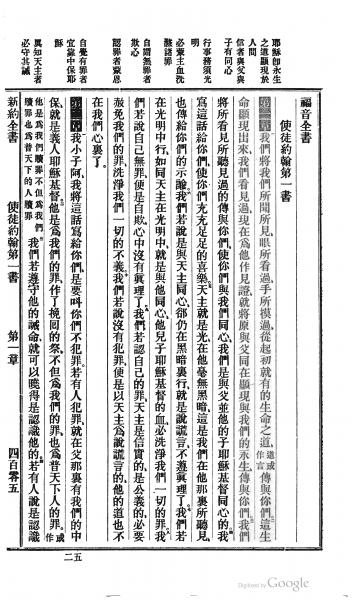 福音全書
使徒約翰第一書
耶穌卽永生
之道顯現於
人間
信者與父與
子有同心
行事務須光
明
必藉主血洗
淨諸罪
自謂無罪者
欺心
認罪者蒙恩
自覺有罪者
宜靠中保耶
穌
眞知天主者
必守其誡
第一章 我們將我們所聞所見、眼所看過、手所摸過、從起初就有的生命之道、道或作言傳與你們、這生
命顯現出來、我們看見過、現在為他作見證、就將原與父同在顯現與我們的永生、傳與你們、我們
將所看見所聽見過的傳與你們、使你們與我們同心、我們是與父並他的子耶穌基督同心的、我
寫這話給你們、使你們充充足足的喜樂、天主就是光、在他毫無黑暗、這是我們在他那裏所聽見、
也傳給你們的示諭、我們若說是與天主同心、卻仍在黑暗裏行、就是說謊言、不遵眞理了、我們若
在光明中行、如同天主在光明中、就是與他同心、他兒子耶穌基督的血必洗淨我們一切的罪、我
們若說自己無罪、便是自欺、心中沒有眞理了、我們若認自己的罪、天主是信實的、是公義的、必要
赦免我們的罪、洗淨我們一切的不義、我們若說沒有犯罪、便是以天主為說謊言的、他的道也不
在我們心裏了、
第二章 我小子阿、我將這話寫給你們、是要叫你們不犯罪、若有人犯罪、就在父那裏有我們的中
保、就是義人耶穌基督、他是為我們的罪、作了挽回的祭、不但為我們的罪、也為普天下人的罪、或作
他是為我們贖罪不但為我們贖罪也為普天下的人贖罪我們若遵守他的誡命、就可以曉得是認識他的、若有人說是認識
新約全書 使徒約翰第一書 第一章 四百零五
二五
Digitized by Google